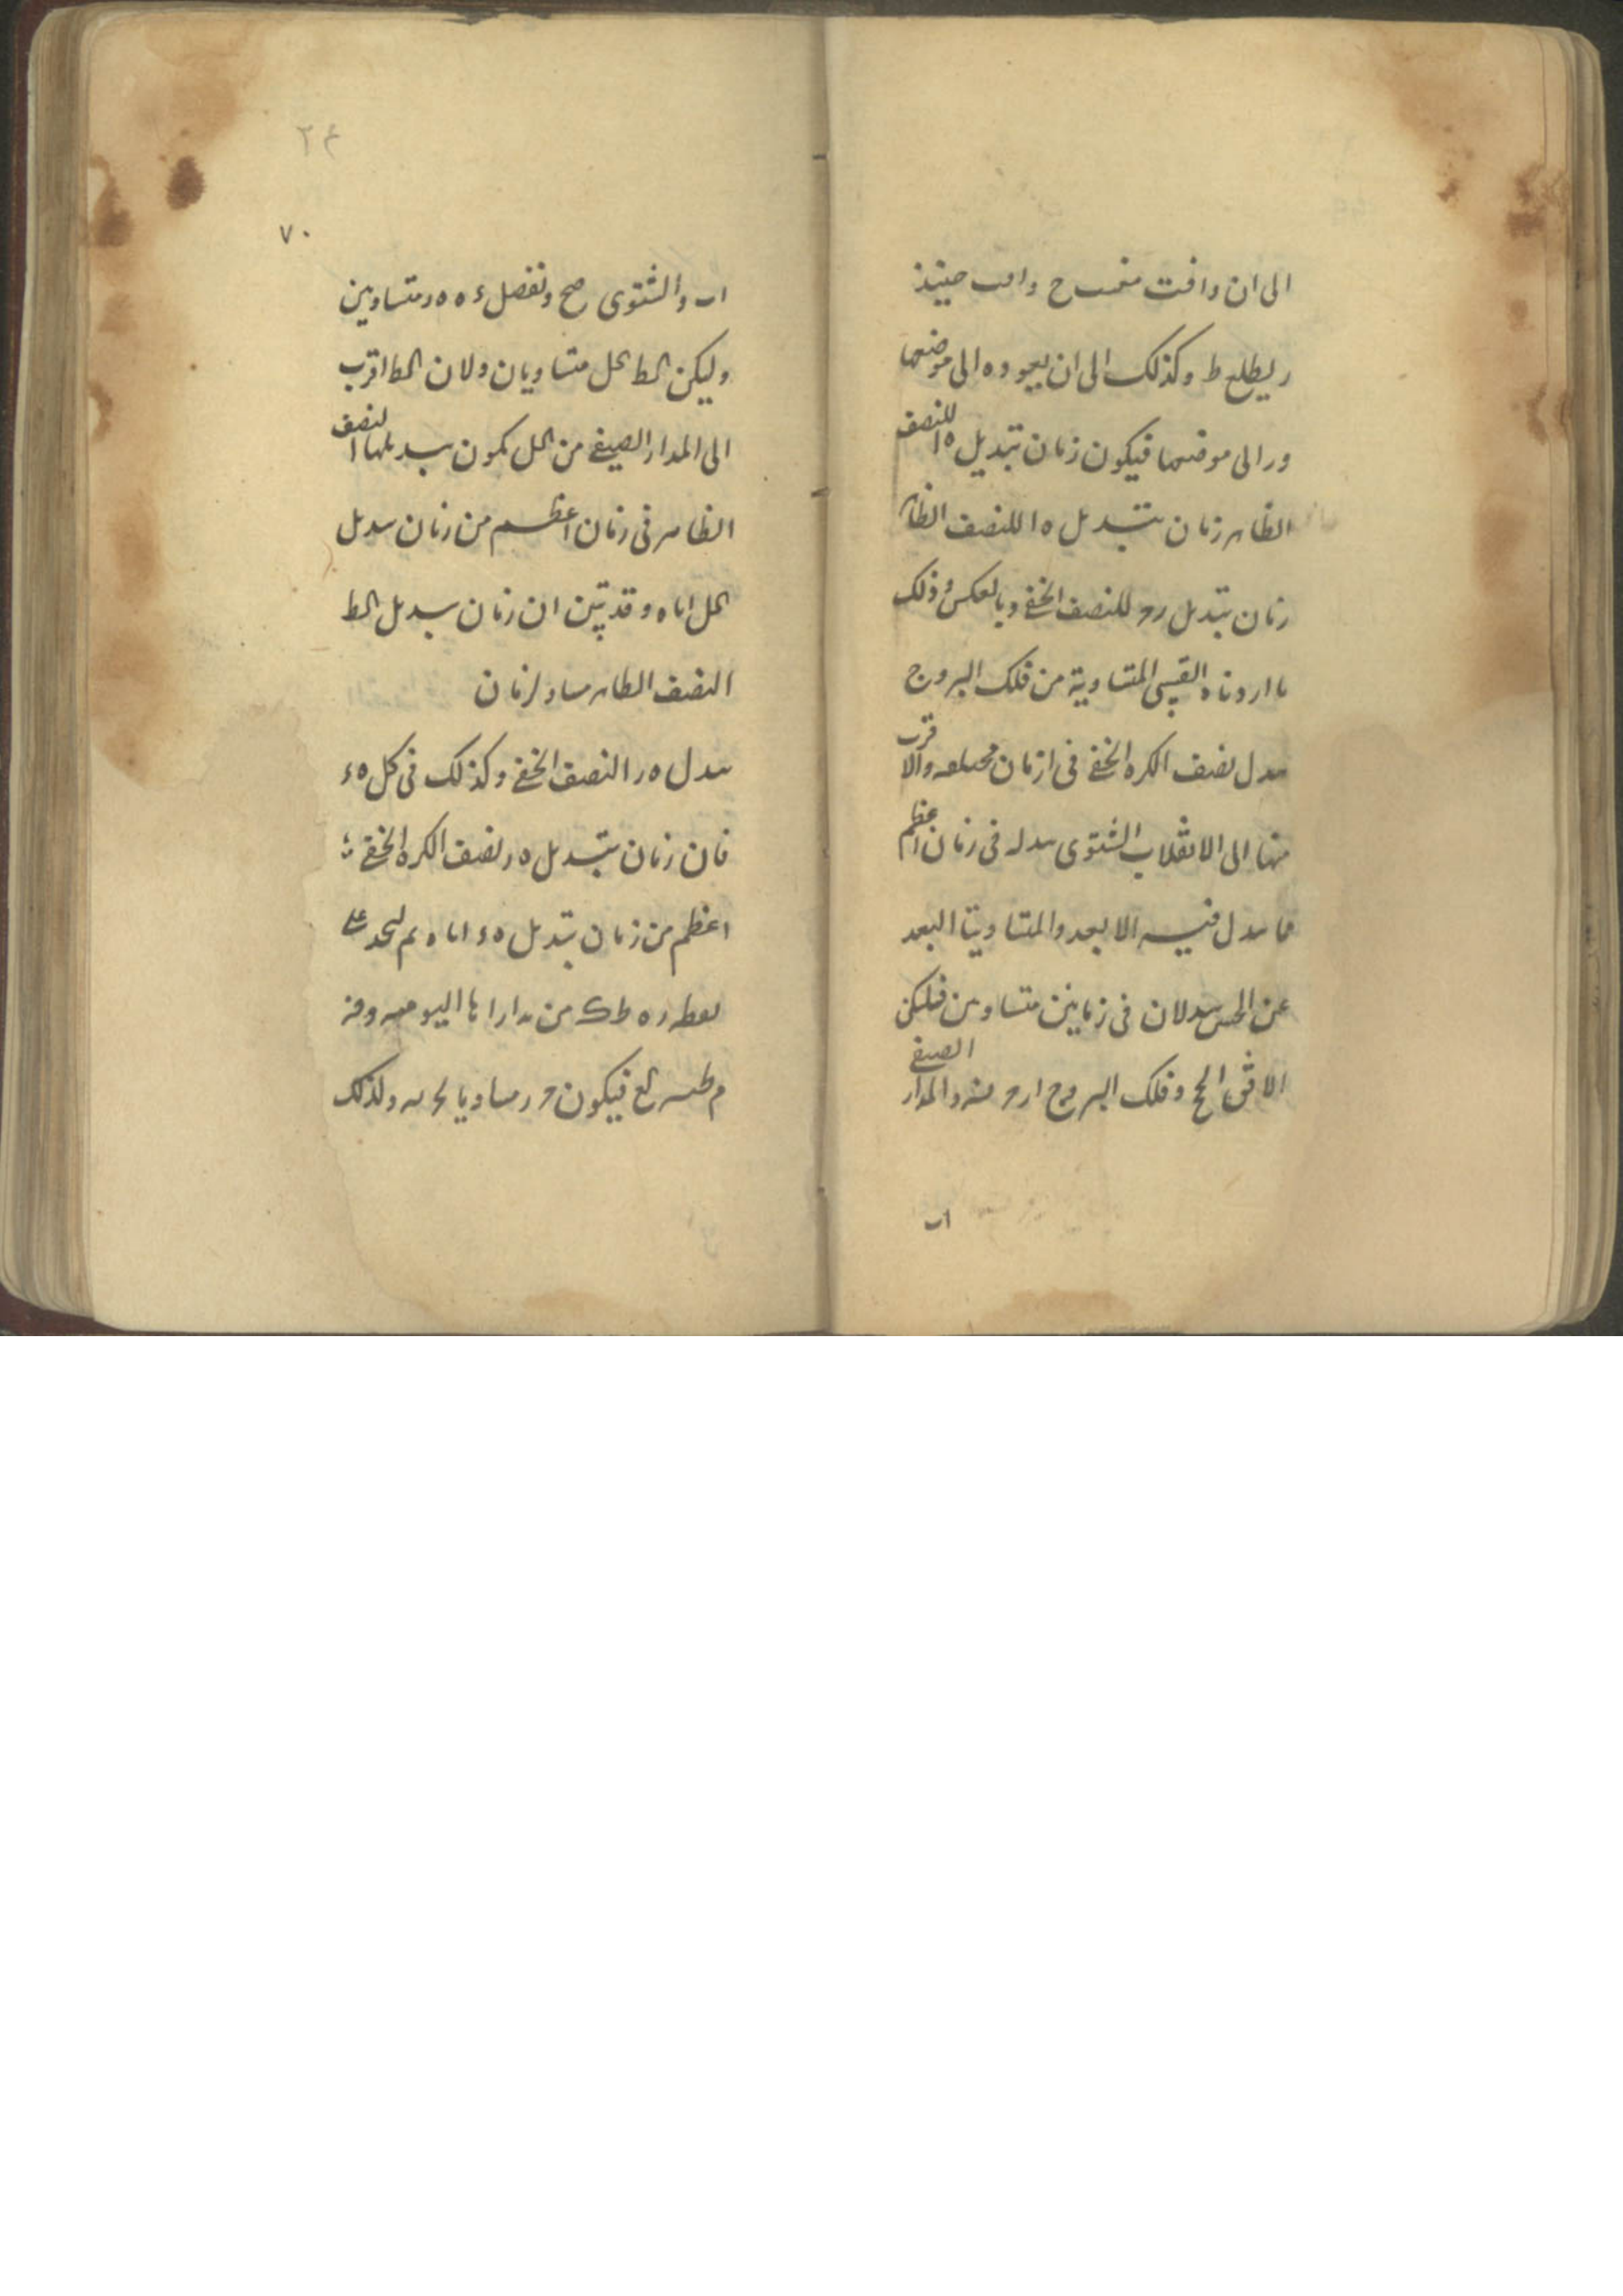 الى ان وافت ح وافت حينئذ
ر ليطلع ط وكذلك الى ان يعود ه الى موضعها
ور الى موضعها فيكون زمان تبديل ه ا للنصف
الظاهر زمان تبديل ه ا للنصف الظاهر
زمان تبديل ر ح للنصف الخفى وبالعكس وذلك
ما اردناه القسى المتساوية من فلك البروج
تبدل نصف الكره الخفى فى ازمان مختلفه والاقرب
منها الى الانقلاب الشتوى تبدله فى زمان اعظم
مما تبدل فيه الابعد والمتساويتا البعد
عن تبدلان فى زمانين متساويين فليكن
الافق ا ح وفلك البروج ا ر ح والمدار الصيفى
اب
٢۴
٧٠
اب والشتوى صح ونفصل ء ه ه ر متساويين
وليكن الط كل متساويان ولان الط اقرب
الى المدار الصيفى من كل يكون تبديلها النصف
الظاهر فى زمان اعظم من زمان تبديل
كل اياه وقد تبين ان زمان تبديل الط
النصف الظاهر مساو لزمان
تبدل ه ر النصف الخفى وكذلك فى كل ه ء
فان زمان تبديل ه ر نصف الكره الخفى
اعظم من زمان تبديل ه ء اياه ثم لنجد على
نقطه ر ه ط ك من مدارات اليوميه وهى
م ط فيكون ح ر مساويا ولذلك